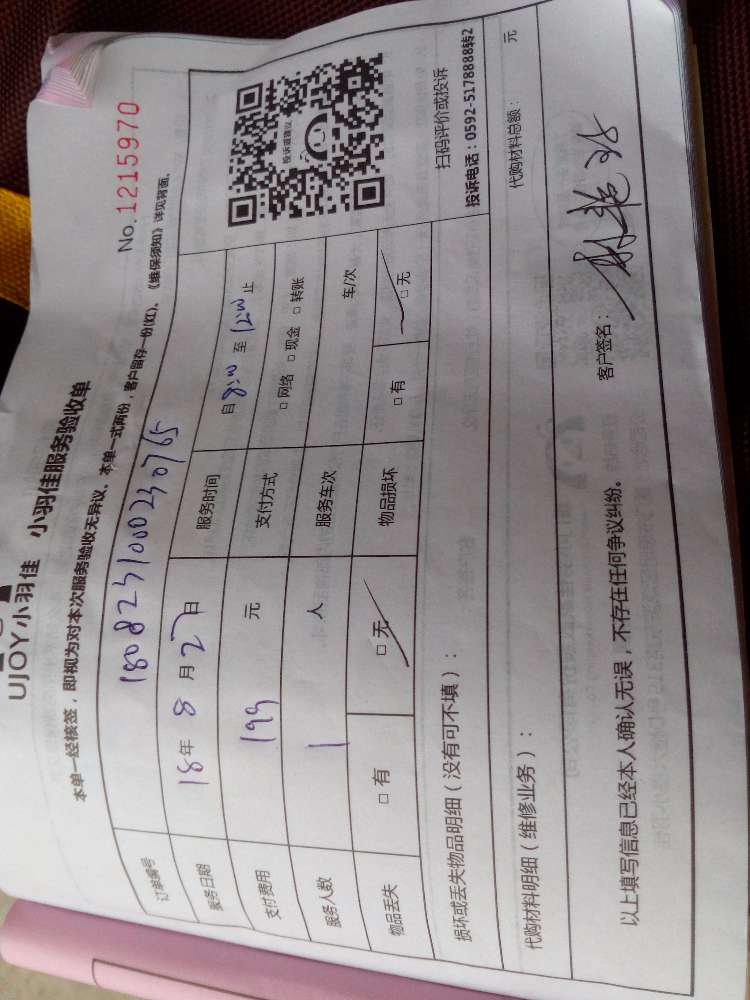 UJOY小羽佳 小羽佳服务验收单
No.1215970
本单一经核签，即视为对本次服务验收无异议、本单一式两份，客户留存一份(红)、《维保须知》详见背面。
订单编号 1808231000230765
服务日期 18年 8月 27日 服务时间 自 8:00 至 12:00 止
支付费用 199 元 支付方式 □网络 □现金 □转账
服务人数 1 人 服务车次 车/次
物品丢失 □有 □无 物品损坏 □有 □无
投诉或建议
扫码评价或投诉
投诉电话：0592-5178888转2
损坏或丢失物品明细（没有可不填）：
代购材料明细（维修业务）： 代购材料总额： 元
以上填写信息已经本人确认无误，不存在任何争议纠纷。
客户签名：